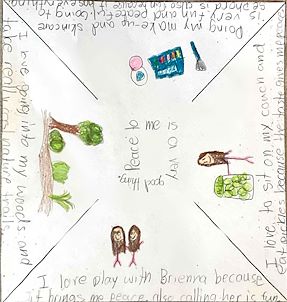 Peace to me is
a very
good thing.
Doing my make-up and skincare
is very fun and peaceful. Going to
sephora is also fun because it has everything
I love going into my woods and
take really cool nature walks.
I love to sit on my couch and
eat pickles because the taste gives me
I love play with Brienna because
it brings me peace, also calling her is fun